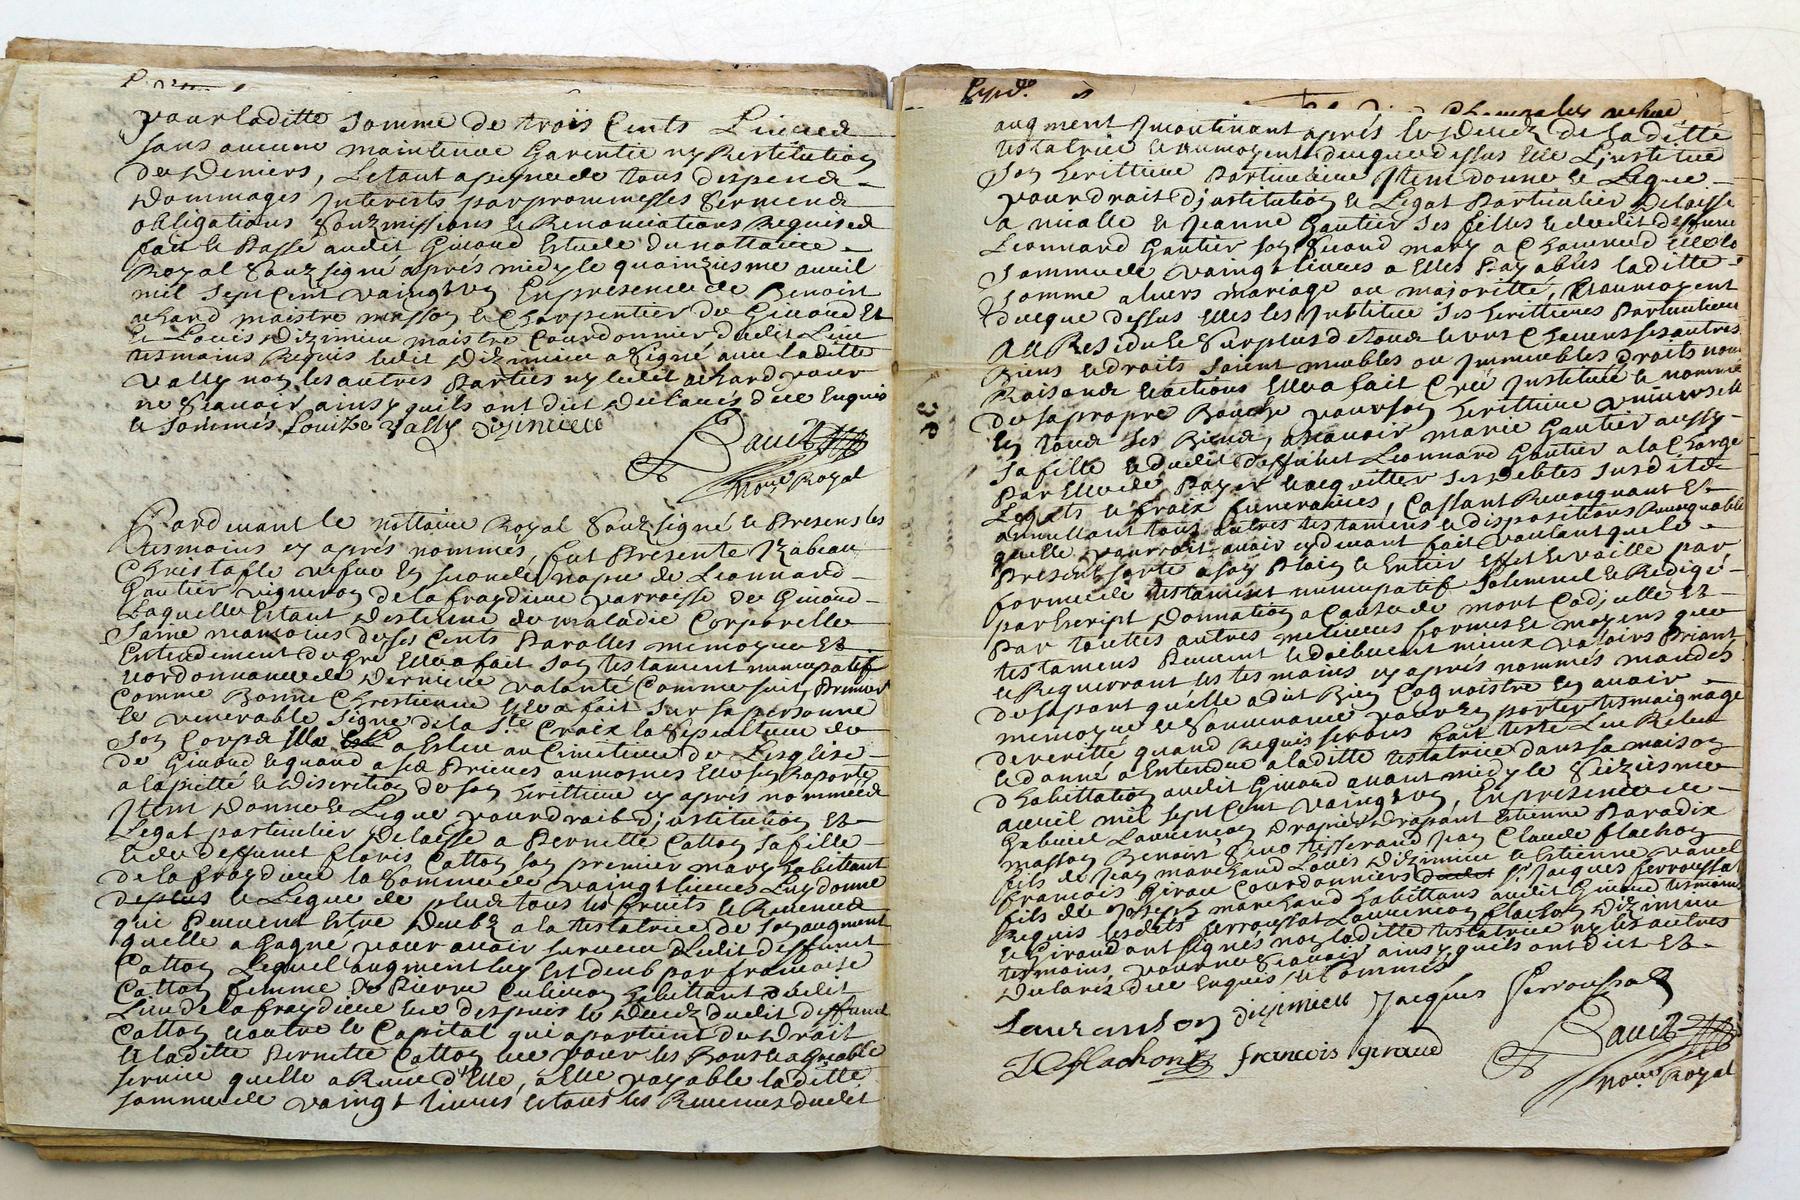 pour laditte somme de trois Cents Livres
sans aucune maintenue Garentie ny Restitution
des Deniers, Letout apeyne de tous despens
Dommages Interests par promesses serments
obligations souzmissions & Renonciations Requises
fait & Passé audit Giraud Estude du nottaire
Royal souzsigné aprés midy le quainziesme avril
mil sept Cent vaingt un En presence de Benoist
achard maistre masson & Charpentier de Giraud Et
de Louis dizimieu maistre Courdonnier dudit Lieu
tesmoins Requis ledit Dizimieu a signé avec laditte
vally non les autres Parties ny ledit achard pour
ne sçavoir ainsy quils ont dit & declaré de ce Enquis
& sommés Louize vally dizimieu
Dauit
no.re Royal
Pardevant le nottaire Royal souzsigné & Presens les
tesmoins cy aprés nommés, fut Presente Izabeau
Christofle vefve En seconde nopce de Leonnard
Gautier vigneron de la fraydiere parroisse de Giraud
Laquelle Estant detenue de maladie Corporelle
saine neanmoins de ses Cents Parolles memoyre Et
Entendement de gré Elle a fait son testament nuncupatif
& ordonnance de Derniere volonté Comme suit, Premier
Comme Bonne Chrestienne Elle a fait sur sa personne
le venerable signe de la S.te Croix la sepulture de
son Corps Elle a Esleu au Cimetiere de Lesglise
de Giraud & quand a ses Prieres aumosnes Elle sen Raporte
a la pietté & discretion de son herittiere cy aprés nommée
Item Donne & Legue pour droit d'institution Et
Legat particulier Delaisse a Pernette Catton sa fille
& de deffunct Floris Catton son premier mary habittant
de la fraydiere la somme de vaingt livres Luy donne
deplus & Legue de plus tous les fruits & Revenus
qui peuvent Estre deubz a la testatrice de son augment
quelle a Gagné pour avoir survecu Ledit deffunct
Catton Lequel augment luy Est deub par francoise
Catton femme de Pierre habittant dudit
Lieu de la fraydiere & ce despuis le deceds dudit deffunct
Catton & outre le Capital qui apartient de Droit
a laditte Pernette Catton & ce pour les Bons & agreable
service quelle a Receu d'Elle, a Elle payable laditte
somme de vaingt livres & tous les Revenus dudit
augment Incontinant aprés le deceds de laditte
testatrice & aumoyent de ce que dessus Elle L'institue
son herittiere Particuliere Item donne & Legue
pour droit d'institution & Legat Particulier Delaisse
a & Jeanne Gautier ses filles & de dit Deffunct
Leonnard Gautier son second mary a Chacune d'Elles la
somme de vaingt livres a Elles Payables laditte
somme a leurs mariage ou majoritté, & aumoyent
de ce que dessus Elles les Institue ses herittieres Particulieres
Au Residu & surplus de tous & uns Chacuns ses autres
Biens & droits soient meubles ou Immeubles droits noms
Raisons & actions Elle a fait Creé Institué & nommé
de sa propre Bouche pour son herittiere universelle
En tous ses Biens, asçavoir marie Gautier aussy
sa fille & dudit deffunct Leonnard Gautier a la Charge
Par Elle de Payer & acquitter ses debtes susdits
Legats & fraix funeraires, Cassant Revocquant Et
annullant tous autres testaments & dispositions Revoquable
quelle pourroit avoir cy devant fait voulant que le
Present sorte a son Plain & Entier effet & vaille par
forme de testament nuncupatif solemnel & Redigé
par Escript Donnation a Cause de mort Codicille Et
Par touttes autres meilleures formes & moyens que
testamens Peuvent & doibvent mieux valoirs Priant
& Requerrant les tesmoins cy aprés nommés mandés
de sa part quelle a dit Bien Cognoistre En avoir
memoyre & souvenance pour En porter tesmoignage
de veritté quand Requis serons fait testé Leu Releu
& donné a Entendre a laditte testatrice dans sa maison
d'habittation audit Giraud avant midy le seiziesme
avril mil sept Cent vaingt un, En presence de
Gabriel Laurenson Drapier drapant Etienne Paradix
masson Benoist tisserand Jean Claude flachon
fils de Jean marchand Louis Dizimieu & Etienne
francois Girau Courdonniers S.r Jacques ferroussat
fils de Joseph marchand habittans audit Giraud tesmoins
Requis lesdits ferroussat Laurenson flachon Dizimieu
& Giraud ont signés non laditte testatrice ny les autres
tesmoins pour ne sçavoir ainsy quils ont dit Et
Declarés de ce Enquis & sommés
Lauranson dizimieu Jacques Ferroussat
J C flachon francois giraud
Dauit
no.re Royal